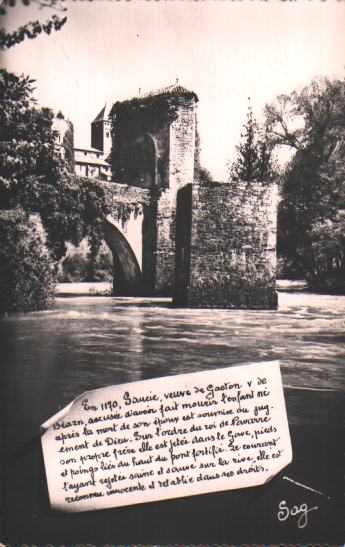 En 1170, Sancie, veuve de Gaston V de
Béarn, accusée d'avoir fait mourir l'enfant né
après la mort de son époux est soumise au jug-
ement de Dieu. Sur l'ordre du roi de Navarre
son propre frère elle est jetée dans le Gave, pieds
et poings liés du haut du pont fortifié. Le courant
l'ayant rejetée saine et sauve sur la rive, elle est
reconnue innocente et rétablie dans ses droits.